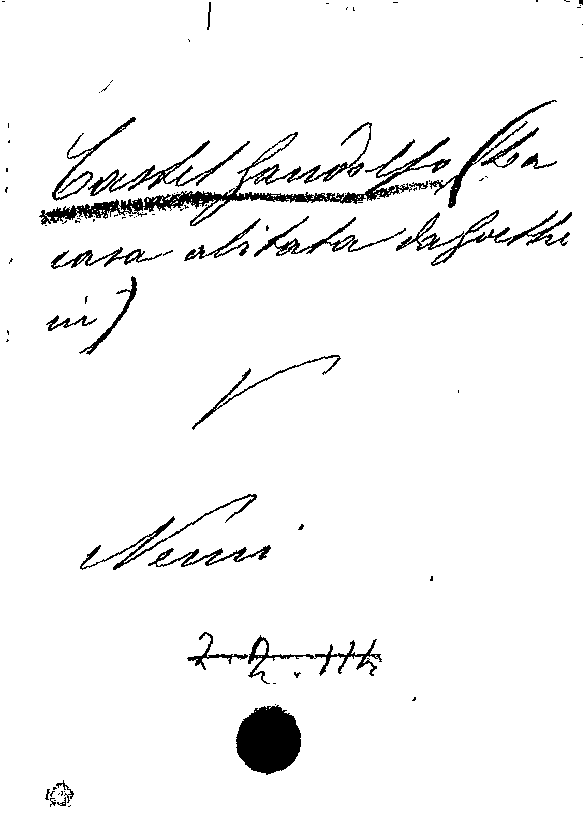 Castel Gandolfo (La
casa abitata da Goethe
in)
V
Nemi